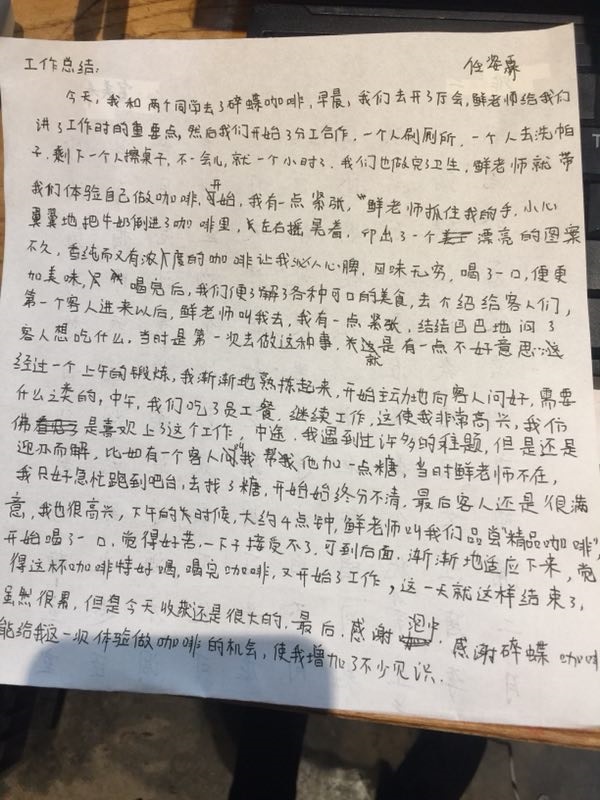 工作总结: 任姿霖
今天,我和两个同学去了碎蝶咖啡,早晨,我们去开了厅会,鲜老师给我们
讲了工作时的重要点,然后我们开始了分工合作.一个人刷厕所.一个人去洗帕
子.剩下一个人擦桌子,不一会儿,就一个小时了.我们也做完了卫生,鲜老师就带
我们体验自己做咖啡,开始,我有一点紧张,"鲜老师抓住我的手,小心
翼翼地把牛奶倒进了咖啡里,左右摇晃着.印出了一个漂亮的图案
不久,香纯而又有浓度的咖啡让我沁人心脾,回味无穷,喝了一口,便更
加美味,我喝完后,我们便了解了各种可口的美食,去介绍给客人们,
第一个客人进来以后,鲜老师叫我去,我有一点紧张,结结巴巴地问了
客人想吃什么,当时是第一次去做这种事,这是有一点不好意思∵这就
经过一个上午的锻炼,我渐渐地熟拣起来,开始主动地向客人问好,需要
什么之类的,中午,我们吃了员工餐,继续工作,这使我非常高兴,我仿
佛是喜欢上了这个工作,中途,我遇到过许多的难题,但是还是
迎亦而解,比如有一个客人叫我帮他加一点糖,当时鲜老师不在,
我只好急忙跑到吧台,去找了糖,开始始终分不清,最后客人还是很满
意,我也很高兴,下午的时候,大约4点钟,鲜老师叫我们品尝"精品咖啡",
开始喝了一口,觉得好苦,一下子接受不了,可到后面,渐渐地适应下来,觉
得这杯咖啡特好喝,喝完咖啡,又开始了工作,这一天就这样结束了,
虽然很累,但是今天收获还是很大的.最后.感谢 感谢碎蝶咖啡
能给我这一次体验做咖啡的机会,使我增加了不少见识.